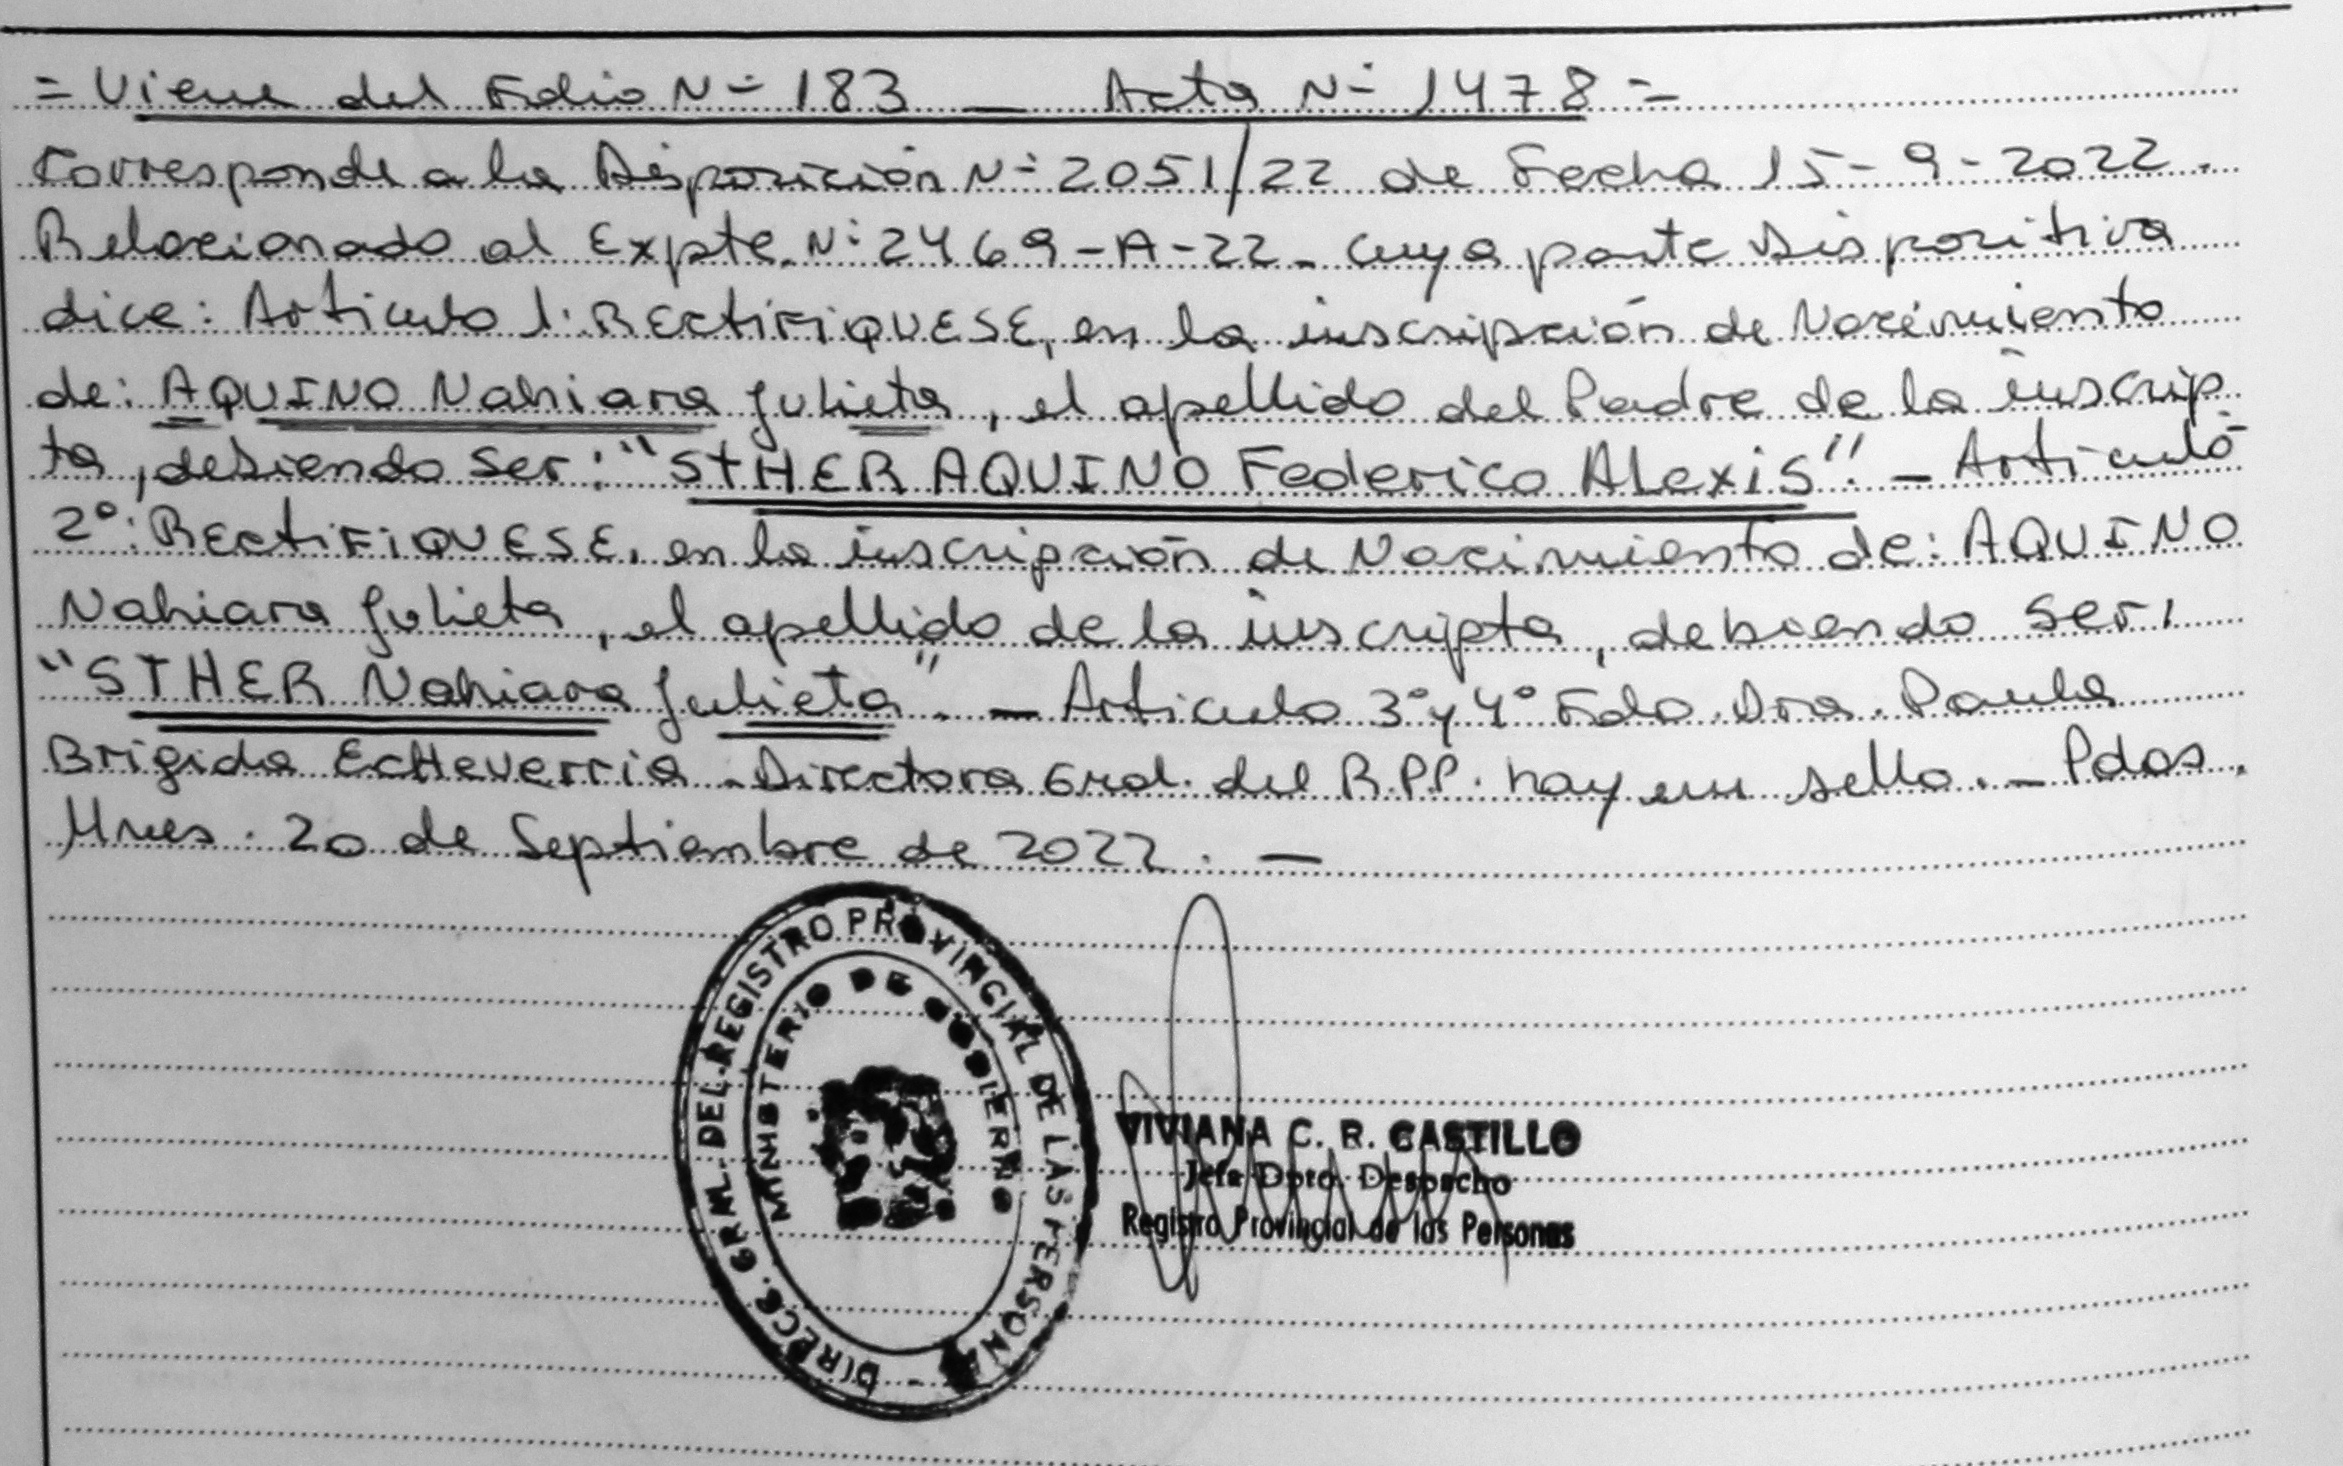 = Viene del Folio N- 183 — Acta N- 1478 =
Corresponde a la Disposición N- 2051/22 de Fecha 15-9-2022.
Relacionado al Expte. N- 2469-A-22_ cuya parte Dispositiva
dice: Articulo 1: RECtiFiQUESE, en la inscripción de Nacimiento
de: AQUINO Nahiara Julieta, el apellido del Padre de la inscrip
ta, debiendo ser: "STHER AQUINO Federico Alexis". — Articulo
2°: RECtiFiQUESE, en la inscripción de Nacimiento de: AQUINO
Nahiara Julieta, el apellido de la inscripta, debiendo ser:
"STHER Nahiara Julieta". — Articulo 3° y 4° Fdo. Dra. Paula
Brigida EcHeverria - Directora Gral. del R.P.P. hay un sello. — Pdas,
Mnes. 20 de Septiembre de 2022. —
DIRECC. GRAL. DEL REGISTRO PROVINCIAL DE LAS PERSONAS -
MINISTERIO DE GOBIERNO
VIVIANA C. R. CASTILLO
Jefa Dpto. Despacho
Registro Provincial de las Personas